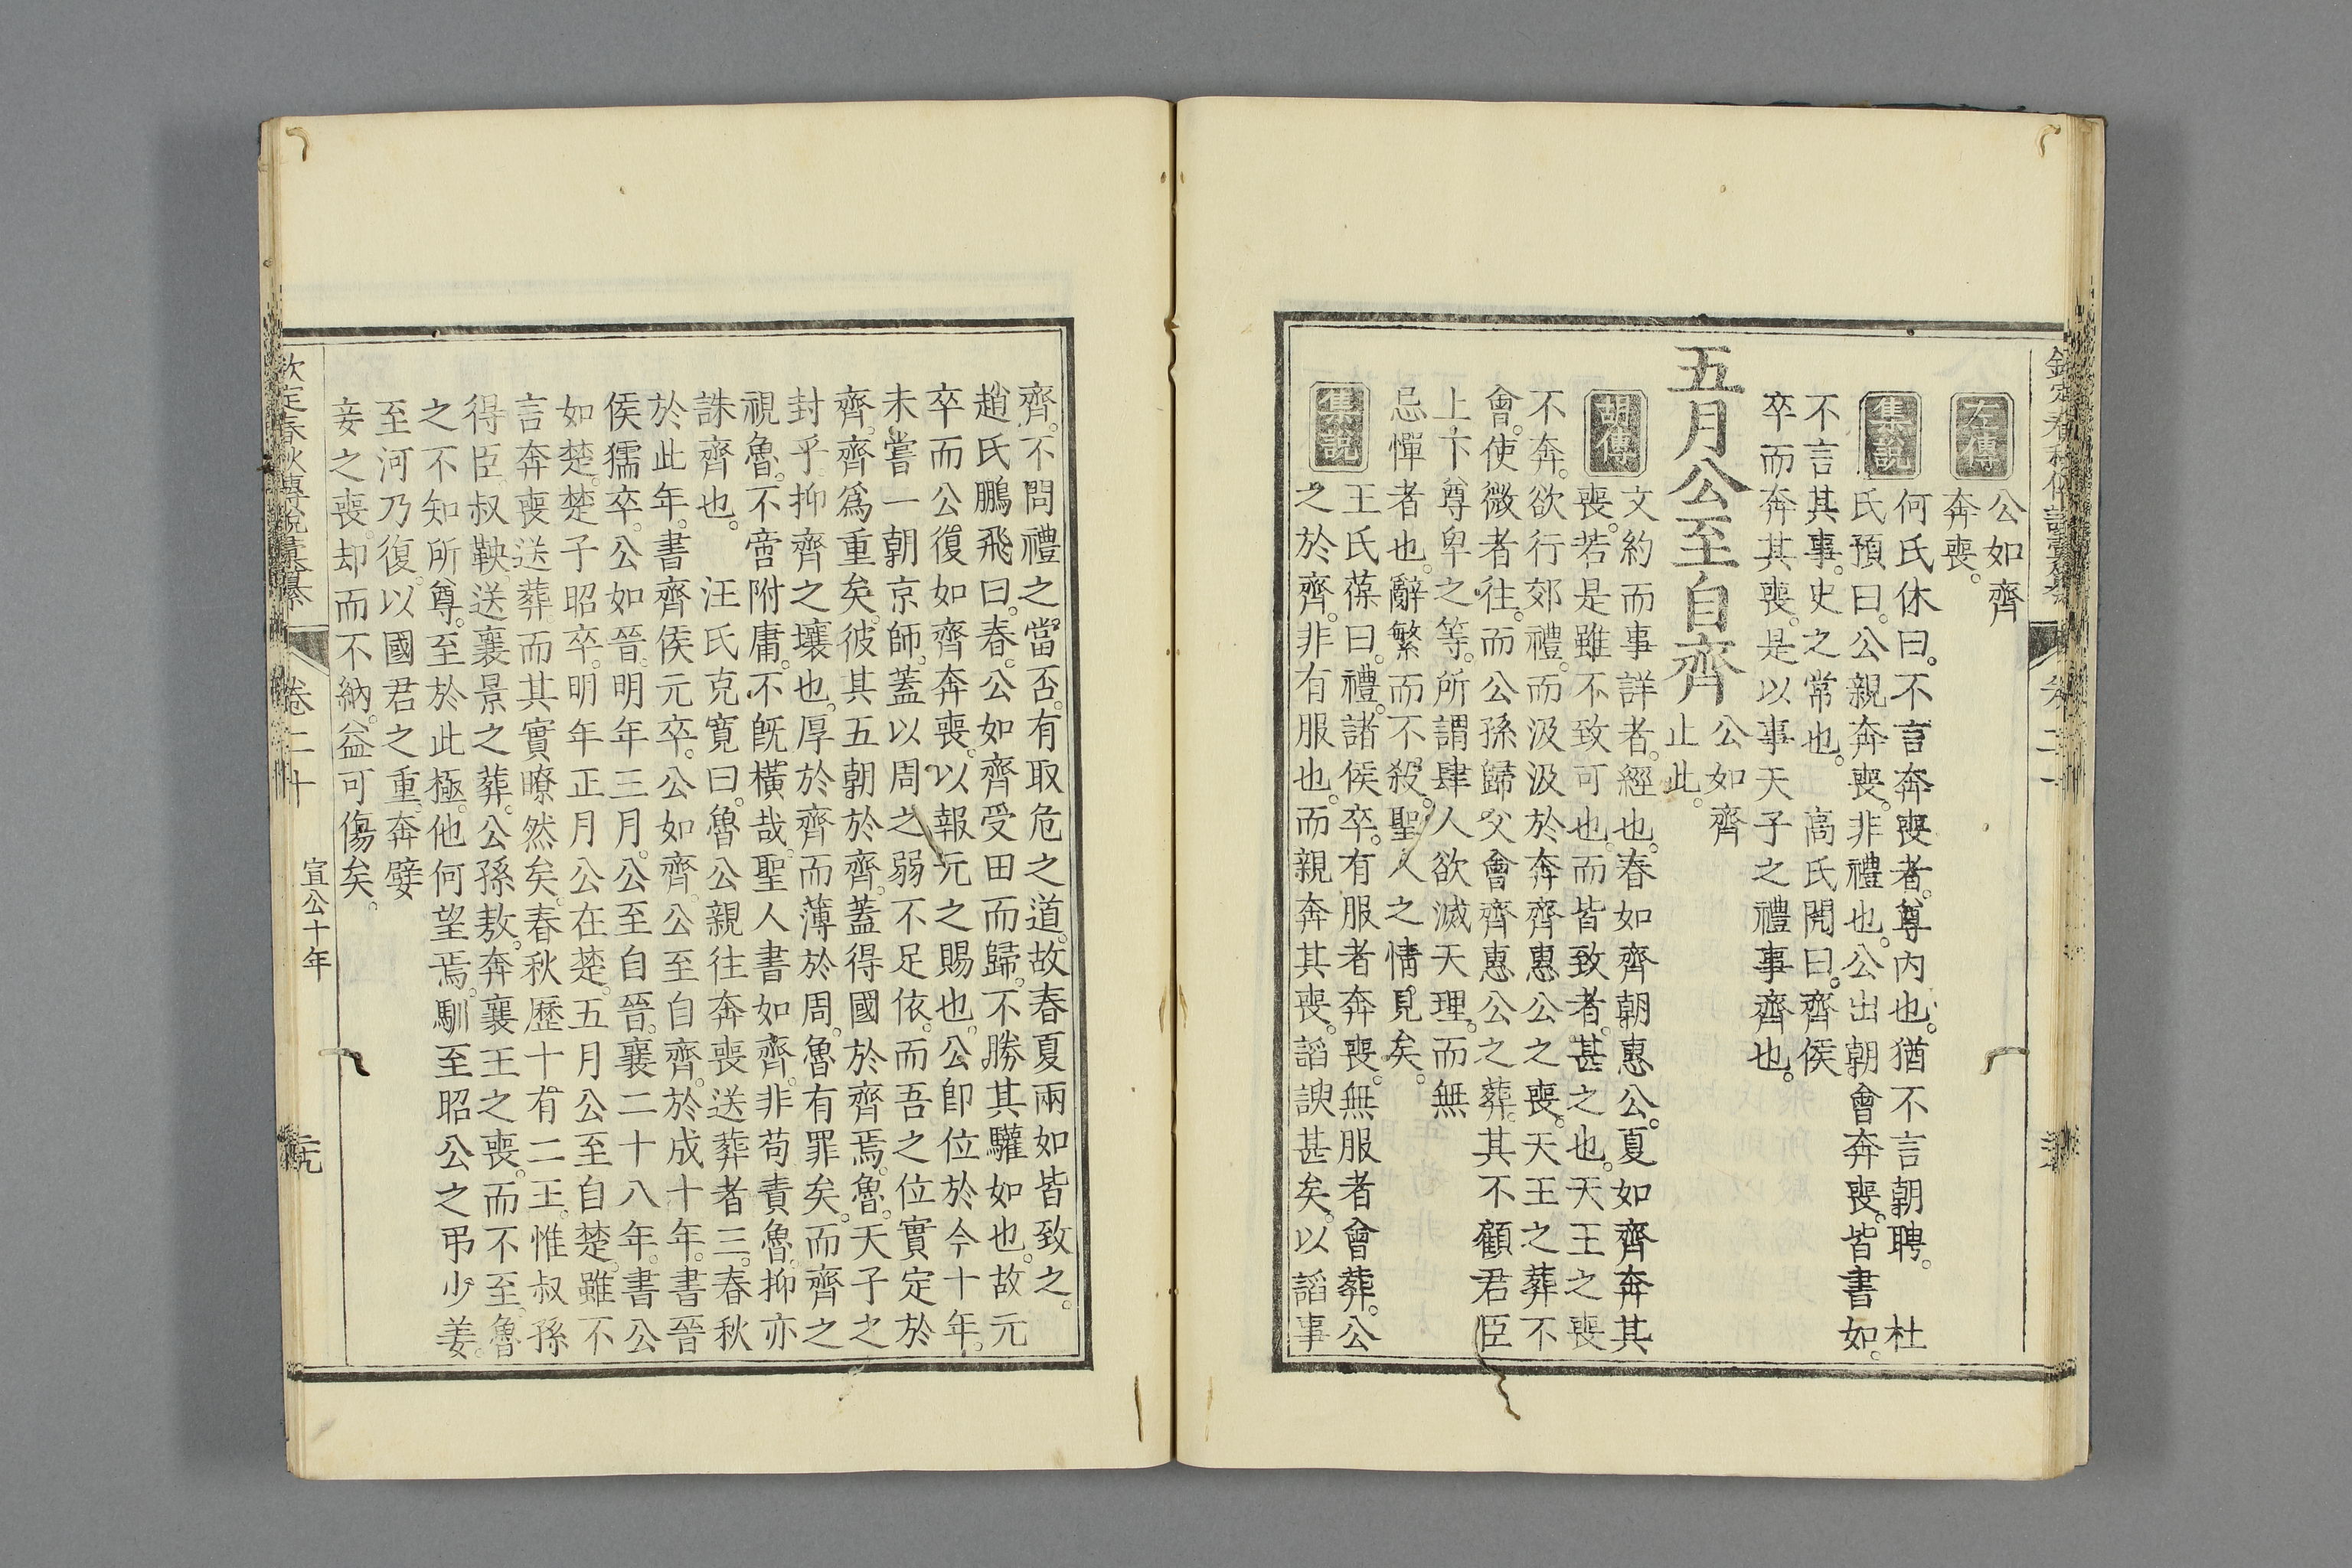 左傳
公如齊
奔喪。
集說
何氏休曰。不言奔喪者。尊內也。猶不言朝聘。 杜
氏預曰。公親奔喪。非禮也。公出朝會奔喪。皆書如。
不言其事。史之常也。 高氏閌曰。齊侯
卒而奔其喪。是以事天子之禮事齊也。
五月公至自齊
公如齊
止此。
胡傳
文約而事詳者。經也。春如齊朝惠公。夏如齊奔其
喪。若是雖不致可也。而皆致者。甚之也。天王之喪
不奔。欲行郊禮。而汲汲於奔齊惠公之喪。天王之葬不
會。使微者往。而公孫歸父會齊惠公之葬。其不顧君臣
上下尊卑之等。所謂肆人欲滅天理。而無
忌憚者也。辭繁而不殺。聖人之情見矣。
集說
王氏葆曰。禮。諸侯卒。有服者奔喪。無服者會葬。公
之於齊。非有服也。而親奔其喪。諂諛甚矣。以諂事
齊。不問禮之當否。有取危之道。故春夏兩如皆致之。
趙氏鵬飛曰。春。公如齊受田而歸。不勝其驩如也。故元
卒而公復如齊奔喪。以報元之賜也。公卽位於今十年。
未嘗一朝京師。蓋以周之弱不足依。而吾之位實定於
齊。齊爲重矣。彼其五朝於齊。蓋得國於齊焉。魯。天子之
封乎。抑齊之壤也。厚於齊而薄於周。魯有罪矣。而齊之
視魯。不啻附庸。不旣橫哉。聖人書如齊。非苟責魯。抑亦
誅齊也。 汪氏克寬曰。魯公親往奔喪送葬者三。春秋
於此年。書齊侯元卒。公如齊。公至自齊。於成十年。書晉
侯獳卒。公如晉。明年三月。公至自晉。襄二十八年。書公
如楚。楚子昭卒。明年正月公在楚。五月公至自楚。雖不
言奔喪送葬。而其實瞭然矣。春秋歷十有二王。惟叔孫
得臣。叔鞅。送襄景之葬。公孫敖。奔襄王之喪。而不至。魯
之不知所尊。至於此極。他何望焉。馴至昭公之弔少姜。
至河乃復。以國君之重。奔嬖
妾之喪。却而不納。益可傷矣。
欽定春秋傳說彙纂
卷二十
宣公十年